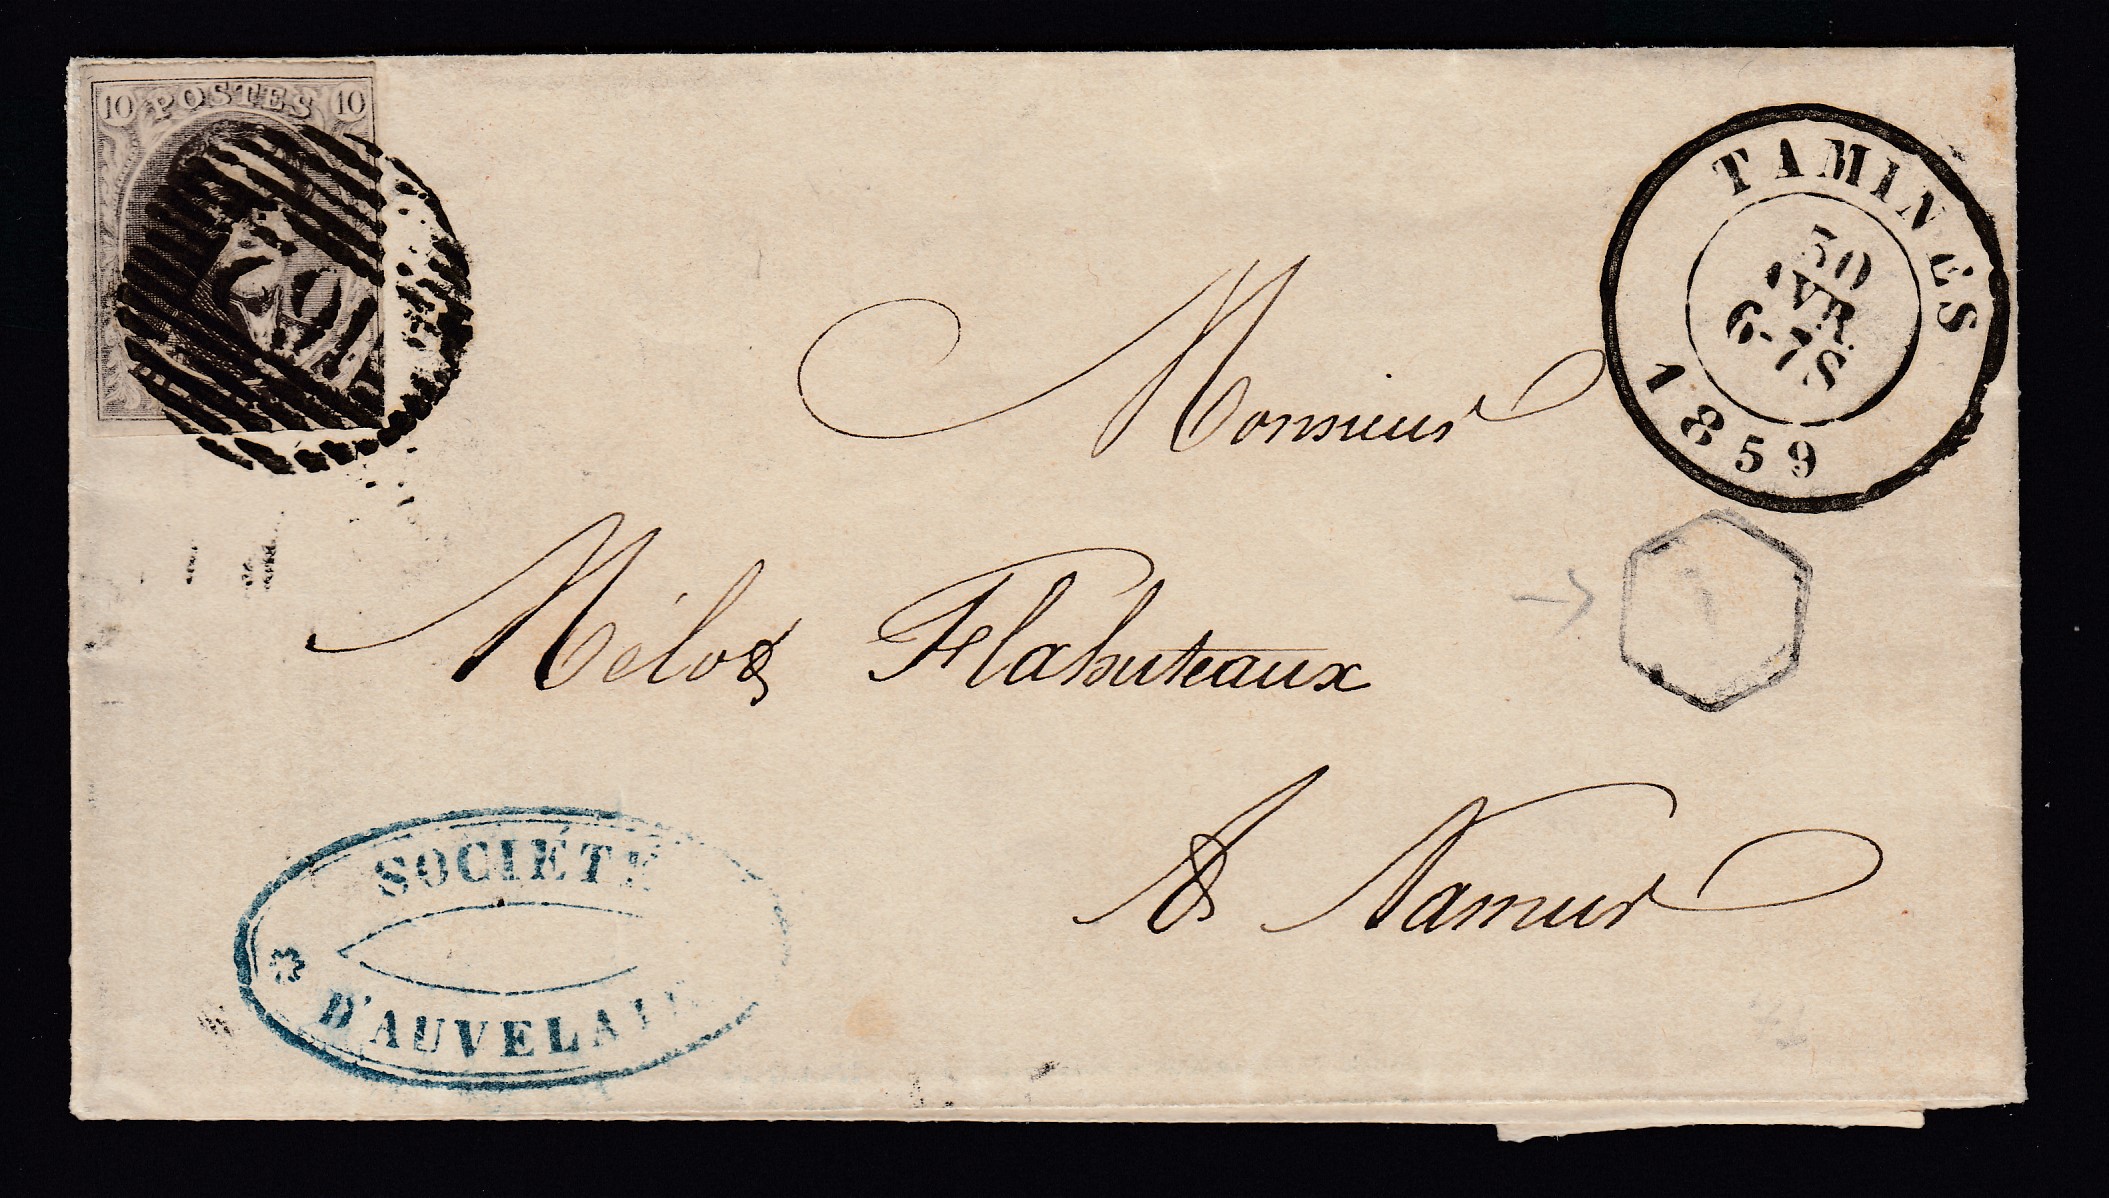 10 POSTES 10
TAMINES
30
AVR.
6-7S
1859
Monsieur
Flahuteaux
à Namur
SOCIÉTÉ
D'AUVELAIS